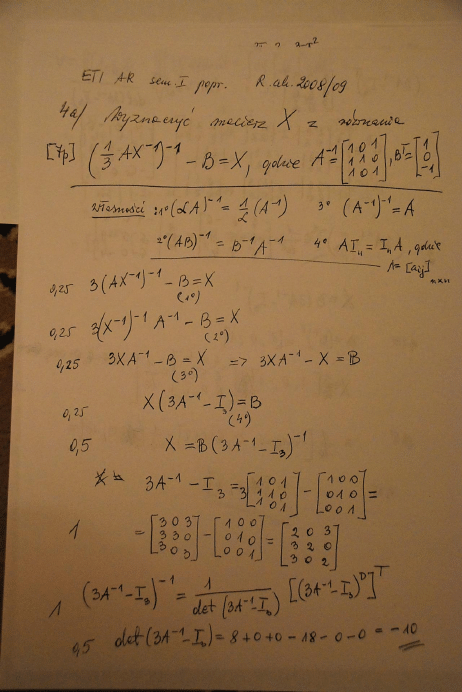 ETI AR sem. I popr. R.ak. 2008/09
4a/ Wyznaczyć macierz X z równania
[7p] (1/3 AX⁻¹)⁻¹ - B = X, gdzie A⁻¹ = [1 0 1; 1 1 0; 1 0 1], Bᵀ = [1; 0; -1]
własności: 1° (αA)⁻¹ = 1/α (A⁻¹) 3° (A⁻¹)⁻¹ = A
2° (AB)⁻¹ = B⁻¹A⁻¹ 4° AIₙ = IₙA, gdzie
A = [aij]ₙₓₙ
0,25 3(AX⁻¹)⁻¹ - B = X
(1°)
0,25 3(X⁻¹)⁻¹ A⁻¹ - B = X
(2°)
0,25 3XA⁻¹ - B = X => 3XA⁻¹ - X = B
(3°)
0,25 X(3A⁻¹ - I₃) = B
(4°)
0,5 X = B(3A⁻¹ - I₃)⁻¹
3A⁻¹ - I₃ = 3[1 0 1; 1 1 0; 1 0 1] - [1 0 0; 0 1 0; 0 0 1] =
1 = [3 0 3; 3 3 0; 3 0 3] - [1 0 0; 0 1 0; 0 0 1] = [2 0 3; 3 2 0; 3 0 2]
1 (3A⁻¹ - I₃)⁻¹ = 1/det(3A⁻¹ - I₃) [(3A⁻¹ - I₃)ᴰ]ᵀ
0,5 det(3A⁻¹ - I₃) = 8 + 0 + 0 - 18 - 0 - 0 = -10